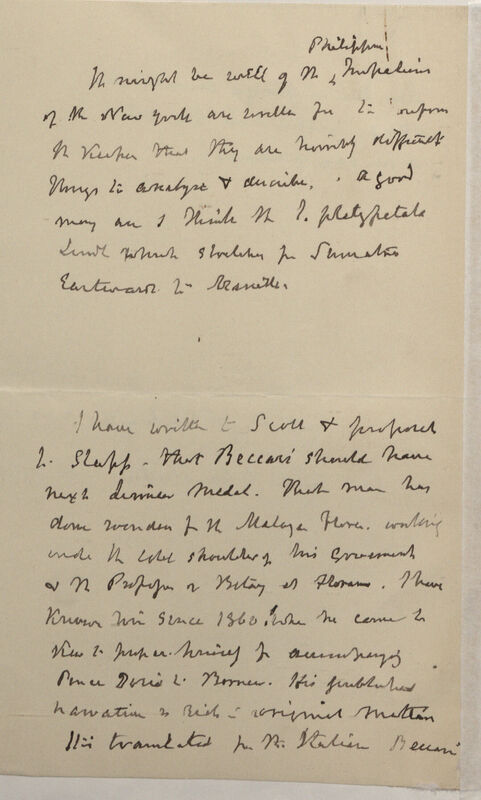 Philippine
It might be well if the Impatiens
of the New York are written for to inform
the Keeper that they are horribly difficult
things to analyse & describe. A good
many are I think the I. platypetala
Lindl which stretches fr Sumatra
Eastward to Manilla.
I have written to Scott & proposed
to Stapf - that Beccari should have
next Linnean Medal. That man has
done wonders for the Malayan Flora. working
under the cold shoulder of his Government
& the Professor of Botany at Florence. I have
known him since 1860! when he came to
Kew to prepare himself for accompanying
Prince Doria to Borneo. His published
narrative is rich in original matter
It is translated fr the Italian Beccari